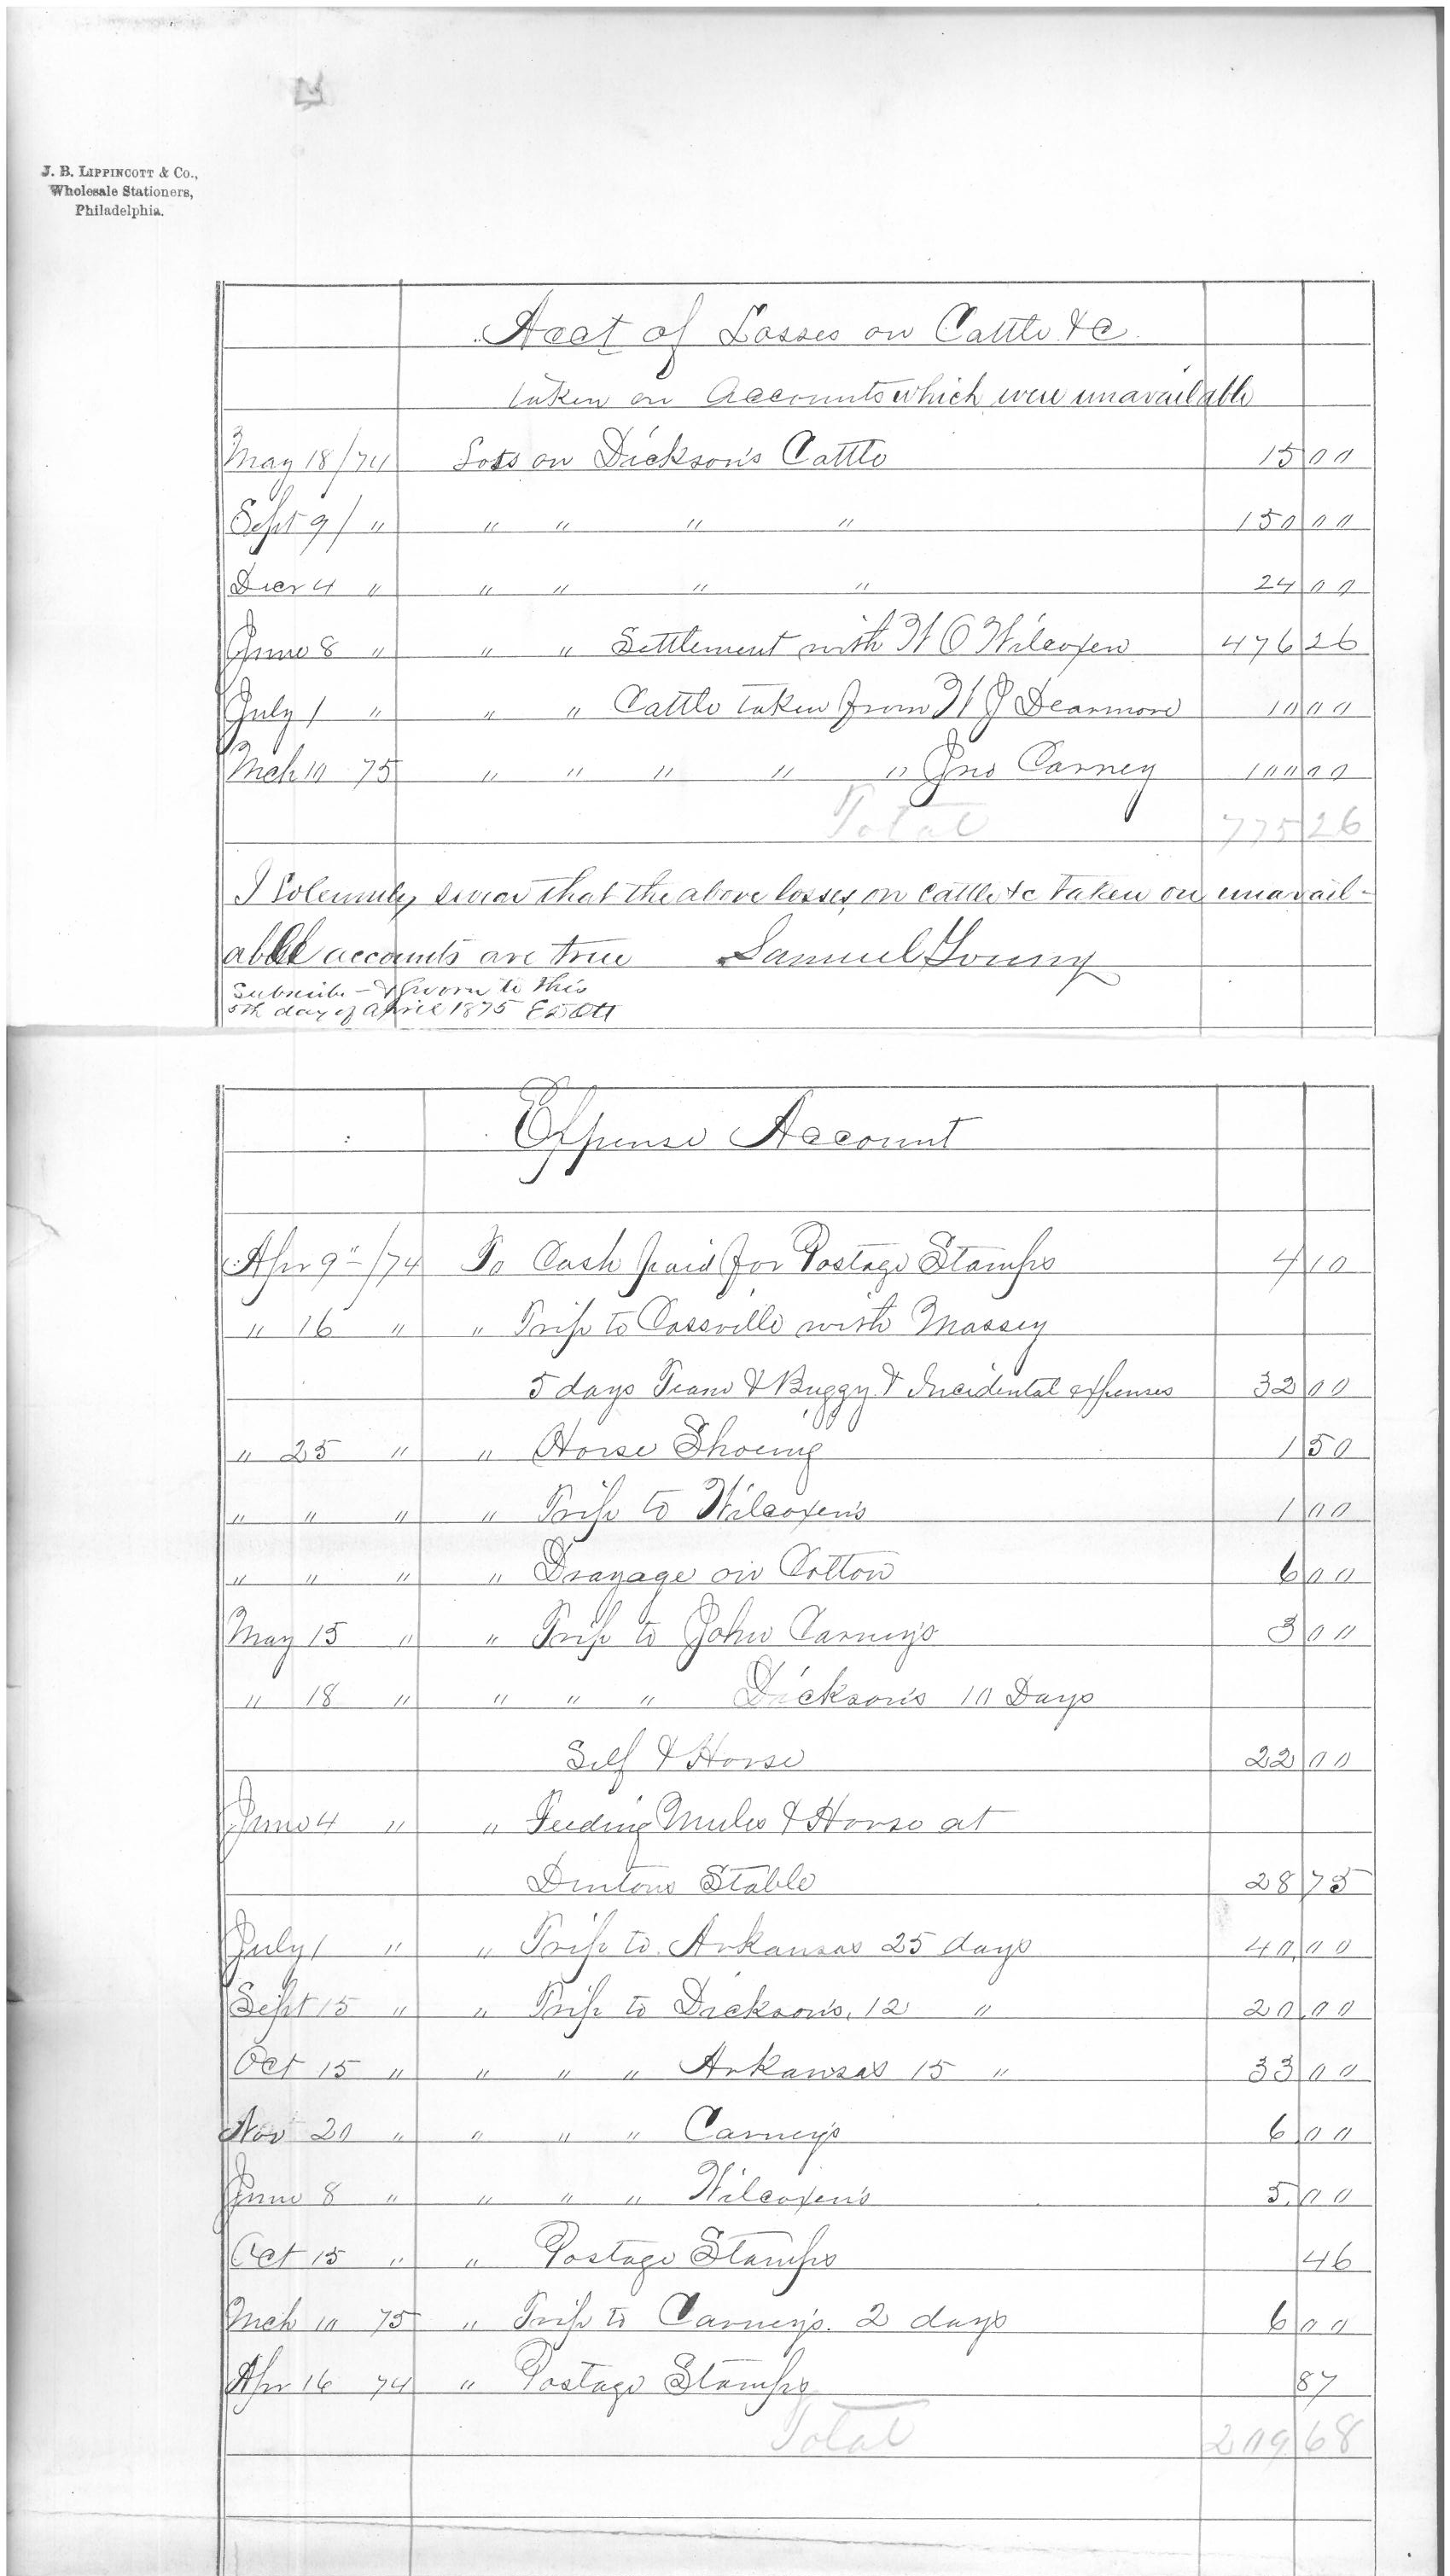 J. B. LIPPINCOTT & Co.,
Wholesale Stationers,
Philadelphia.
Acct of Losses on Cattle &c
taken on Accounts which were unavailable
May 18/74 Loss on Dickson's Cattle 15 00
Sept 9/ " " " " " 150 00
Decr 4 " " " " " 24 00
June 8 " " " Settlement with W O Wilcoxen 476 26
July 1 " " " Cattle taken from W J Dearmore 10 00
Mch 10 75 " " " " " Jno Carney 100 00
Total 775 26
I Solemnly swear that the above losses on cattle &c taken on unavail-
able accounts are true Samuel Young
Subscribe - & Sworn to this
5th day of April 1875 E D Ott
Expense Account
Apr 9"/74 To Cash paid for Postage Stamps 4 10
" 16 " " Trip to Cassville with Massey
5 days Team & Buggy & Incidental expenses 32 00
" 25 " " Horse Shoeing 1 50
" " " " Trip to Wilcoxen's 1 00
" " " " Drayage on Cotton 6 00
May 15 " " Trip to John Carney's 3 00
" 18 " " " " Dickson's 10 Days
Self & Horse 22 00
June 4 " " Feeding Mules & Horse at
Dentons Stable 28 75
July 1 " " Trip to Arkansas 25 days 40.00
Sept 15 " " Trip to Dickson's, 12 " 20.00
Oct 15 " " " " Arkansas 15 " 33 00
Nov 20 " " " " Carney's 6 00
June 8 " " " " Wilcoxen's 5.00
Oct 15 " " Postage Stamps 46
Mch 10 75 " Trip to Carney's. 2 days 6 00
Apr 16 74 " Postage Stamps 87
Total 209 68